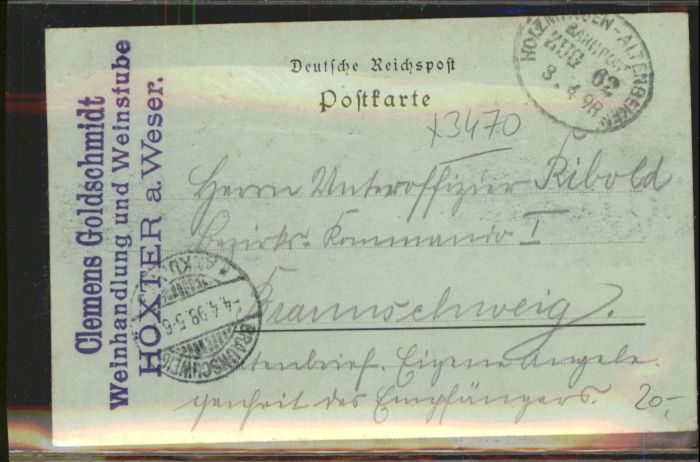 Deutsche Reichspost
Postkarte
HOLZMINDEN-ALTENBEKEN
BAHNPOST
ZUG 62
3.4.98
x3470
Clemens Goldschmidt
Weinhandlung und Weinstube
HÖXTER a. Weser.
Herrn Unteroffizier Ribold
Bezirks-Kommando I
Braunschweig.
Eigene Angele-
genheit des Empfängers.
20-
BRAUNSCHWEIG
-4.4.98.5-6